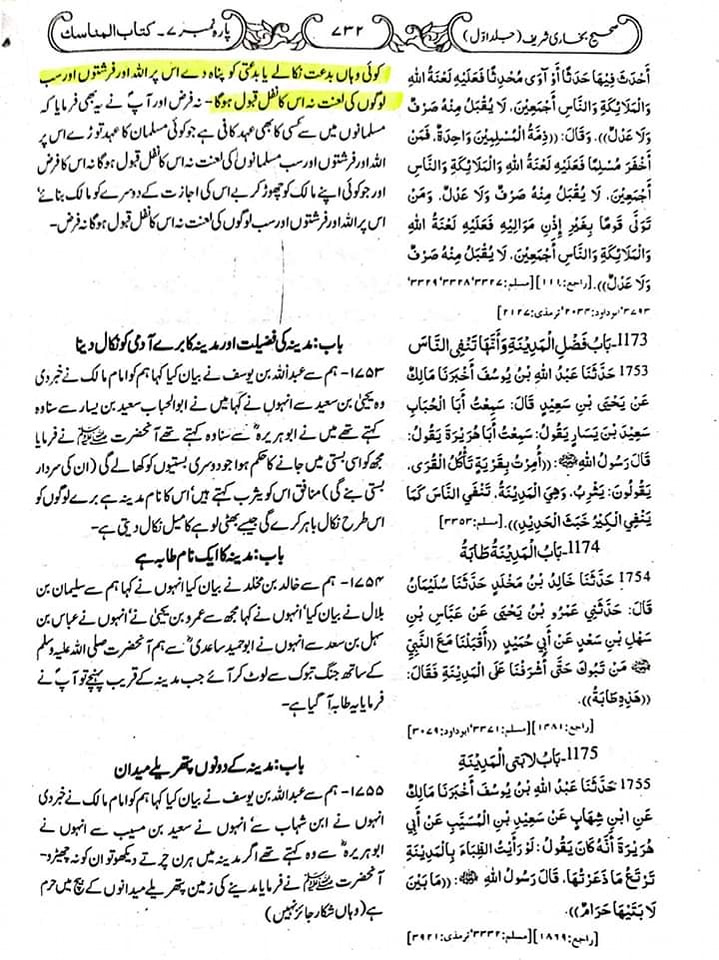 صحیح بخاری شریف (جلد اوّل)
۷۳۲
پارہ نمبر ۷۔ کتاب المناسک
أَحْدَثَ فِيهَا حَدَثًا أَوْ آوَى مُحْدِثًا فَعَلَيْهِ لَعْنَةُ اللهِ
وَالْمَلَائِكَةِ وَالنَّاسِ أَجْمَعِيْنَ، لَا يُقْبَلُ مِنْهُ صَرْفٌ
وَلَا عَدْلٌ)). وَقَالَ: ((ذِمَّةُ الْمُسْلِمِيْنَ وَاحِدَةٌ، فَمَنْ
أَخْفَرَ مُسْلِمًا فَعَلَيْهِ لَعْنَةُ اللهِ وَالْمَلَائِكَةِ وَالنَّاسِ
أَجْمَعِيْنَ، لَا يُقْبَلُ مِنْهُ صَرْفٌ وَلَا عَدْلٌ، وَمَنْ
تَوَلَّى قَوْمًا بِغَيْرِ إِذْنِ مَوَالِيْهِ فَعَلَيْهِ لَعْنَةُ اللهِ
وَالْمَلَائِكَةِ وَالنَّاسِ أَجْمَعِيْنَ، لَا يُقْبَلُ مِنْهُ صَرْفٌ
وَلَا عَدْلٌ)). [راجع: ۱۱۱] [مسلم: ۳۳۲۷، ۳۳۲۸، ۳۳۲۹،
۳۷۹۳، ابوداود: ۲۰۳۴، ترمذی: ۲۱۲۷]
1173- بَابُ فَضْلِ الْمَدِيْنَةِ وَأَنَّهَا تَنْفِي النَّاسَ
1753 حَدَّثَنَا عَبْدُ اللهِ بْنُ يُوسُفَ أَخْبَرَنَا مَالِكٌ
عَنْ يَحْيَى بْنِ سَعِيْدٍ قَالَ: سَمِعْتُ أَبَا الْحُبَابِ
سَعِيْدَ بْنَ يَسَارٍ يَقُولُ: سَمِعْتُ أَبَا هُرَيْرَةَ يَقُولُ:
قَالَ رَسُولُ اللهِ ﷺ: ((أُمِرْتُ بِقَرْيَةٍ تَأْكُلُ الْقُرَى،
يَقُولُونَ: يَثْرِبُ، وَهِيَ الْمَدِيْنَةُ، تَنْفِي النَّاسَ كَمَا
يَنْفِي الْكِيْرُ خَبَثَ الْحَدِيْدِ)). [مسلم: ۳۳۵۳]
1174- بَابُ الْمَدِيْنَةُ طَابَةُ
1754 حَدَّثَنَا خَالِدُ بْنُ مَخْلَدٍ حَدَّثَنَا سُلَيْمَانُ
قَالَ: حَدَّثَنِي عَمْرُو بْنُ يَحْيَى عَنْ عَبَّاسِ بْنِ
سَهْلِ بْنِ سَعْدٍ عَنْ أَبِي حُمَيْدٍ ((أَقْبَلْنَا مَعَ النَّبِيِّ
ﷺ مِنْ تَبُوكَ حَتَّى أَشْرَفْنَا عَلَى الْمَدِيْنَةِ فَقَالَ:
((هَذِهِ طَابَةُ)).
[راجع: ۱۴۸۱] [مسلم: ۳۳۷۱، ابوداود: ۳۰۷۹]
1175- بَابُ لَابَتَيِ الْمَدِيْنَةِ
1755 حَدَّثَنَا عَبْدُ اللهِ بْنُ يُوسُفَ أَخْبَرَنَا مَالِكٌ
عَنِ ابْنِ شِهَابٍ عَنْ سَعِيْدِ بْنِ الْمُسَيَّبِ عَنْ أَبِي
هُرَيْرَةَ أَنَّهُ كَانَ يَقُولُ: لَوْ رَأَيْتُ الظِّبَاءَ بِالْمَدِيْنَةِ
تَرْتَعُ مَا ذَعَرْتُهَا، قَالَ رَسُولُ اللهِ ﷺ: ((مَا بَيْنَ
لَابَتَيْهَا حَرَامٌ)).
[راجع: ۱۸۶۹] [مسلم: ۳۳۳۲، ترمذی: ۳۹۲۱]
کوئی وہاں بدعت نکالے یا بدعتی کو پناہ دے اس پر اللہ اور فرشتوں اور سب
لوگوں کی لعنت نہ اس کا نفل قبول ہوگا۔ نہ فرض اور آپؐ نے یہ بھی فرمایا کہ
مسلمانوں میں سے کسی کا بھی عہد کافی ہے جو کوئی مسلمان کا عہد توڑے اس پر
اللہ اور فرشتوں اور سب مسلمانوں کی لعنت نہ اس کا نفل قبول ہوگا نہ اس کا فرض
اور جو کوئی اپنے مالک کو چھوڑ کر بے اس کی اجازت کے دوسرے کو مالک بنائے
اس پر اللہ اور فرشتوں اور سب لوگوں کی لعنت نہ اس کا نفل قبول ہوگا نہ فرض۔
باب: مدینہ کی فضیلت اور مدینہ کا برے آدمی کو نکال دینا
۱۷۵۳- ہم سے عبداللہ بن یوسف نے بیان کیا کہا ہم کو امام مالک نے خبر دی
وہ یحییٰ بن سعید سے انہوں نے کہا میں نے ابو الحباب سعید بن یسار سے سنا وہ
کہتے تھے میں نے ابو ہریرہؓ سے سنا وہ کہتے تھے آنحضرت ﷺ نے فرمایا
مجھ کو اسی بستی میں جانے کا حکم ہوا جو دوسری بستیوں کو کھا لے گی (ان کی سردار
بستی بنے گی) منافق اس کو یثرب کہتے ہیں، اس کا نام مدینہ ہے برے لوگوں کو
اس طرح نکال باہر کرے گی جیسے بھٹی لوہے کا میل نکال دیتی ہے۔
باب: مدینہ کا ایک نام طابہ ہے
۱۷۵۴- ہم سے خالد بن مخلد نے بیان کیا انہوں نے کہا ہم سے سلیمان بن
بلال نے بیان کیا انہوں نے کہا مجھ سے عمرو بن یحییٰ نے، انہوں نے عباس بن
سہل بن سعد سے انہوں نے ابو حمید ساعدیؓ سے ہم آنحضرت صلی اللہ علیہ وسلم
کے ساتھ جنگ تبوک سے لوٹ کر آئے جب مدینہ کے قریب پہنچے تو آپؐ نے
فرمایا یہ طابہ آ گیا ہے۔
باب: مدینہ کے دونوں پتھریلے میدان
۱۷۵۵- ہم سے عبداللہ بن یوسف نے بیان کیا کہا ہم کو امام مالک نے خبر دی
انہوں نے ابن شہاب سے، انہوں نے سعید بن مسیب سے انہوں نے
ابو ہریرہؓ سے وہ کہتے تھے اگر مدینہ میں ہرن چرتے دیکھو تو ان کو نہ چھیڑو۔
آنحضرت ﷺ نے فرمایا مدینے کی زمین پتھریلے میدانوں کے بیچ میں حرم
ہے (وہاں شکار جائز نہیں)